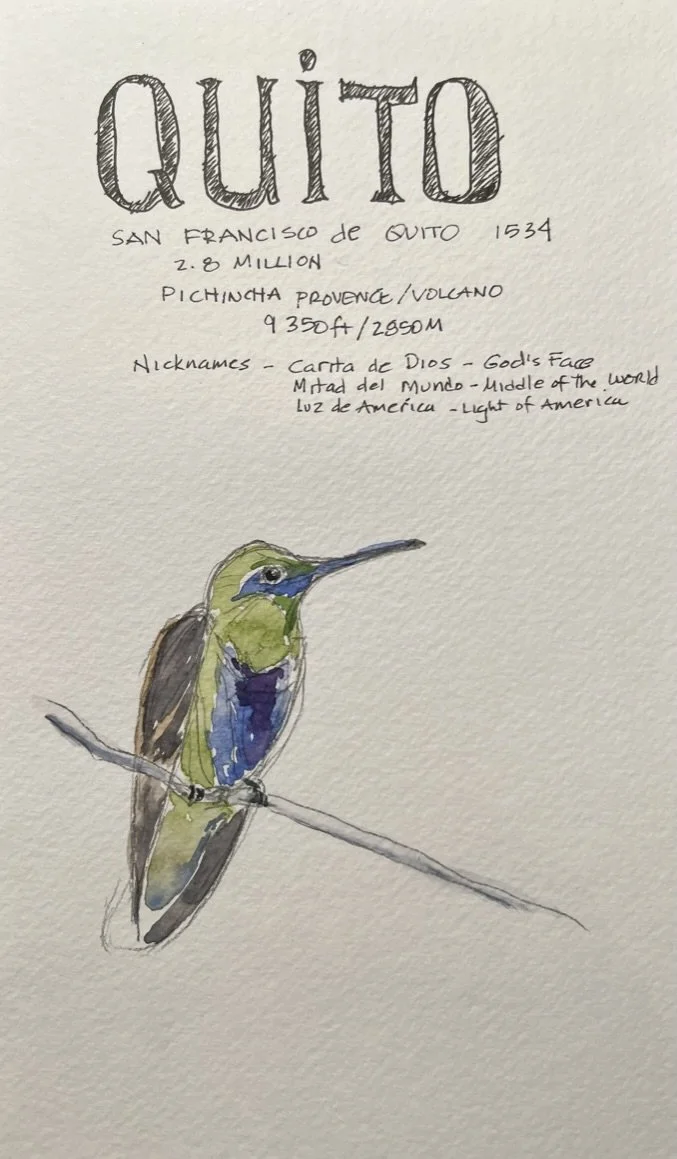 QUiTO
SAN FRANCISCO de QUITO 1534
2.8 MILLION
PICHINCHA PROVENCE/VOLCANO
9 350ft/2850M
Nicknames - Carita de Dios - God's Face
Mitad del Mundo - Middle of the World
Luz de America - Light of America